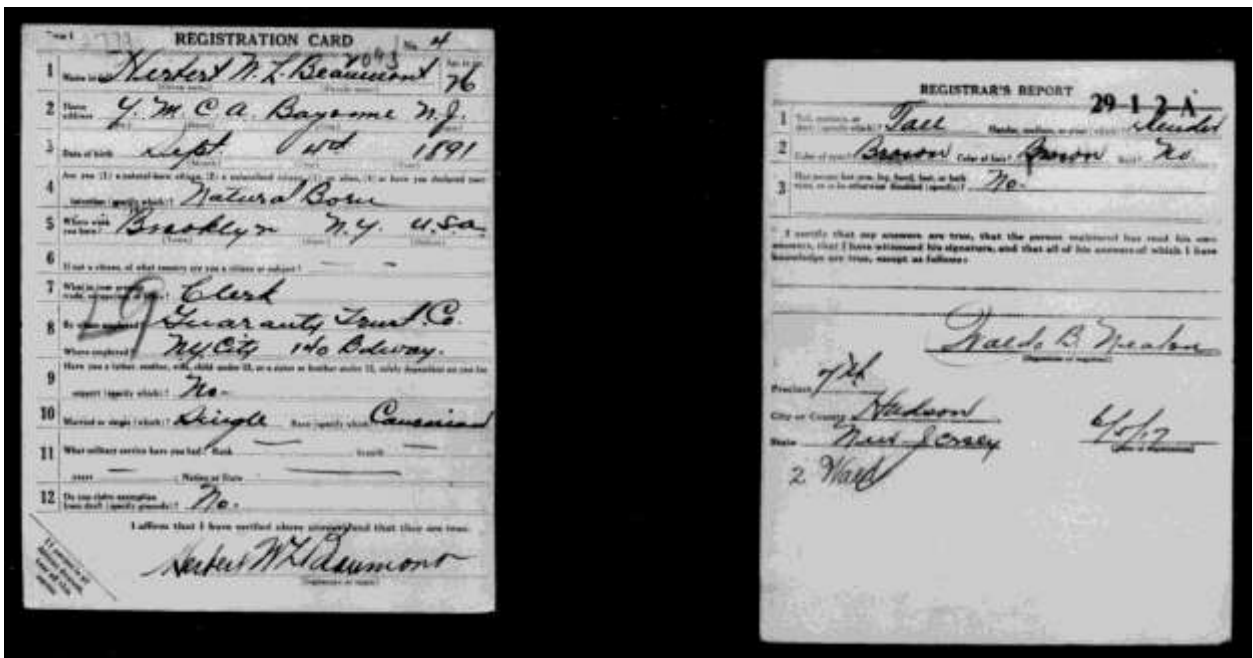 REGISTRATION CARD No. 4
1 Name in full Herbert W. L. Beaumont Age in yrs. 26
2 Home address Y. M. C. A. Bayonne N.J.
3 Date of birth Sept 1891
4 Are you (1) a natural-born citizen, (2) a naturalized citizen, (3) an alien, (4) or have you declared your
intention (specify which)? Natural Born
5 Where were you born? Brooklyn N.Y. U.S.A.
6
If not a citizen, of what country are you a citizen or subject?
7 What is your present trade, occupation, or office? Clerk
8 By whom employed? Guaranty Trust Co.
Where employed? NY City 140 Bdway.
9 Have you a father, mother, wife, child under 12, or a sister or brother under 12, solely dependent on you for
support (specify which)? No-
10 Married or single (which)? Single Race (specify which)? Caucasian
11 What military service have you had? Rank branch
years Nation or State
12 Do you claim exemption from draft (specify grounds)? No-
I affirm that I have verified above answers and that they are true.
Herbert W L Beaumont
(Signature or mark)
REGISTRAR'S REPORT
29-1-2-A
1 Tall, medium, or short (specify which)? Tall Slender, medium, or stout (which)? Slender
2 Color of eyes? Brown Color of hair? Brown Bald? No.
3 Has person lost arm, leg, hand, foot, or both eyes, or is he otherwise disabled (specify)? No-
I certify that my answers are true, that the person registered has read his own
answers, that I have witnessed his signature, and that all of his answers of which I have
knowledge are true, except as follows:
Waldo B.
(Signature of registrar)
Precinct 7th
City or County Hudson
State New Jersey 6/5/17
(Date of registration)
2 Ward